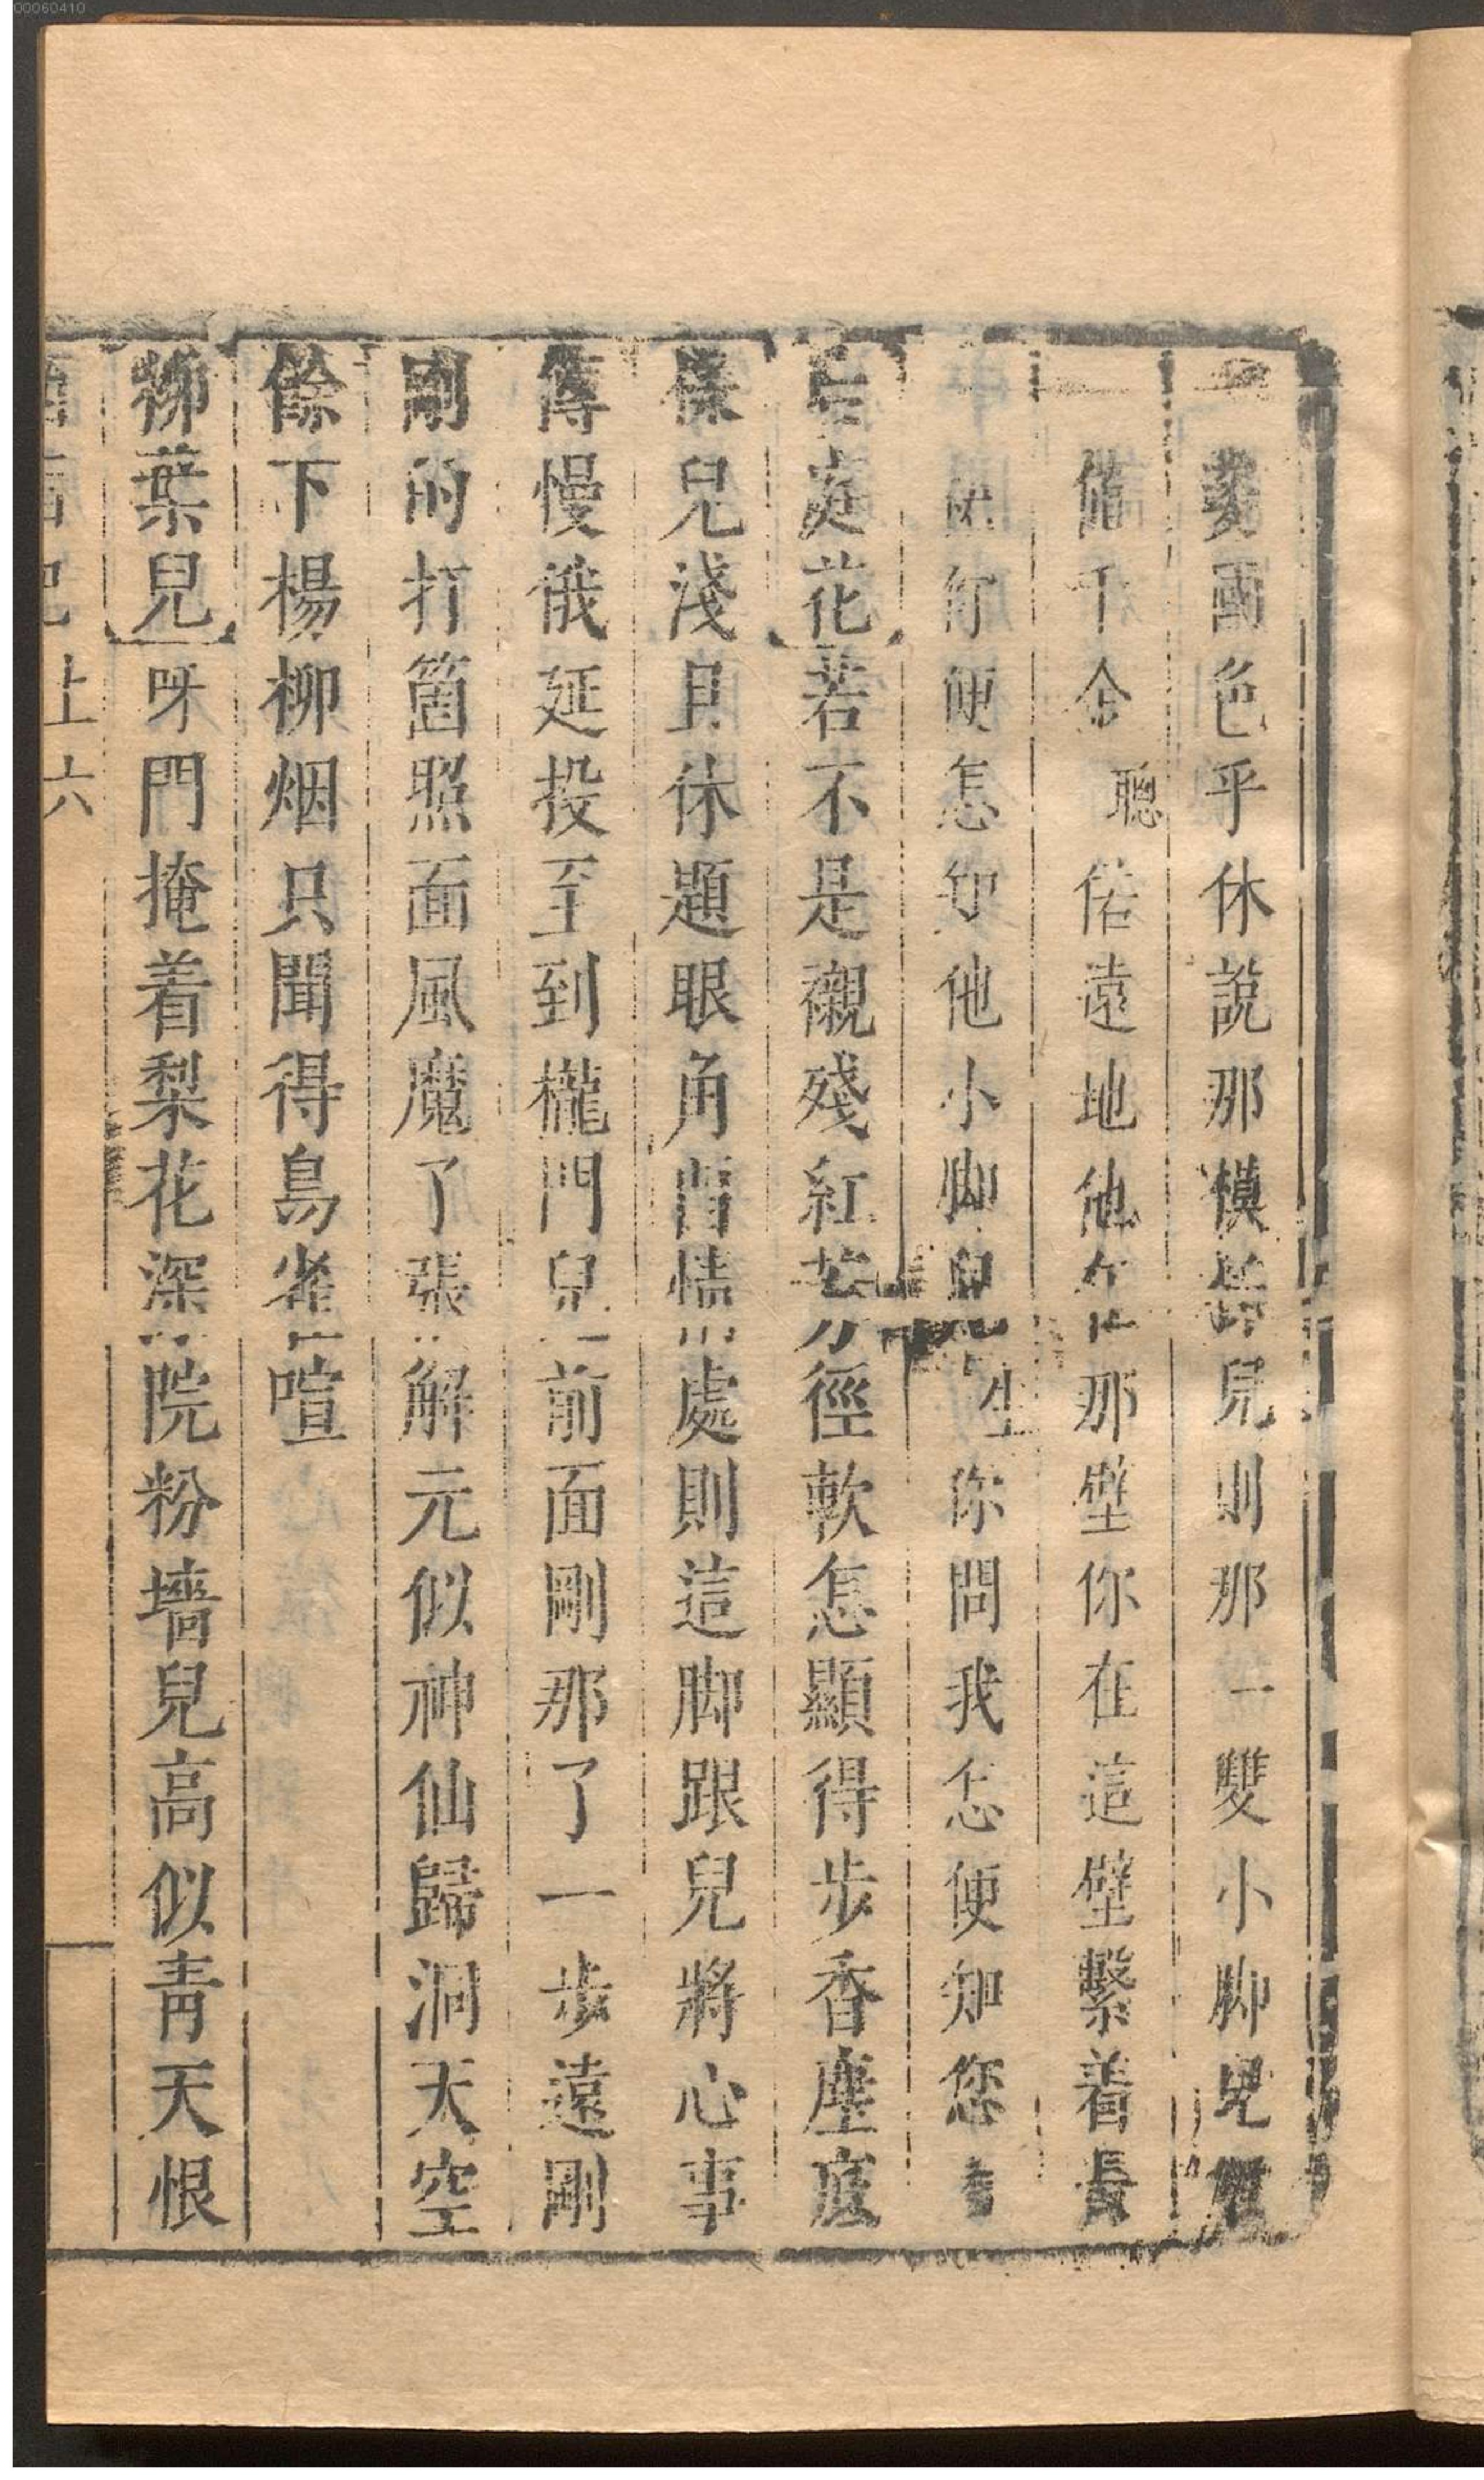 國色乎休說那模兒則那一雙小脚兒
千金聰偌遠地他在那壁你在這壁繫着長
你便怎知他小脚兒生你問我怎便知您
后庭花若不是襯殘紅芳徑軟怎顯得步香塵底
樣兒淺且休題眼角留情處則這脚跟兒將心事
傳慢俄延投至到櫳門兒前面剛那了一步遠剛
剛的打箇照面風魔了張解元似神仙歸洞天空
餘下楊柳烟只聞得鳥雀喧
柳葉兒呀門掩着梨花深院粉墻兒高似青天恨
上六
00060410